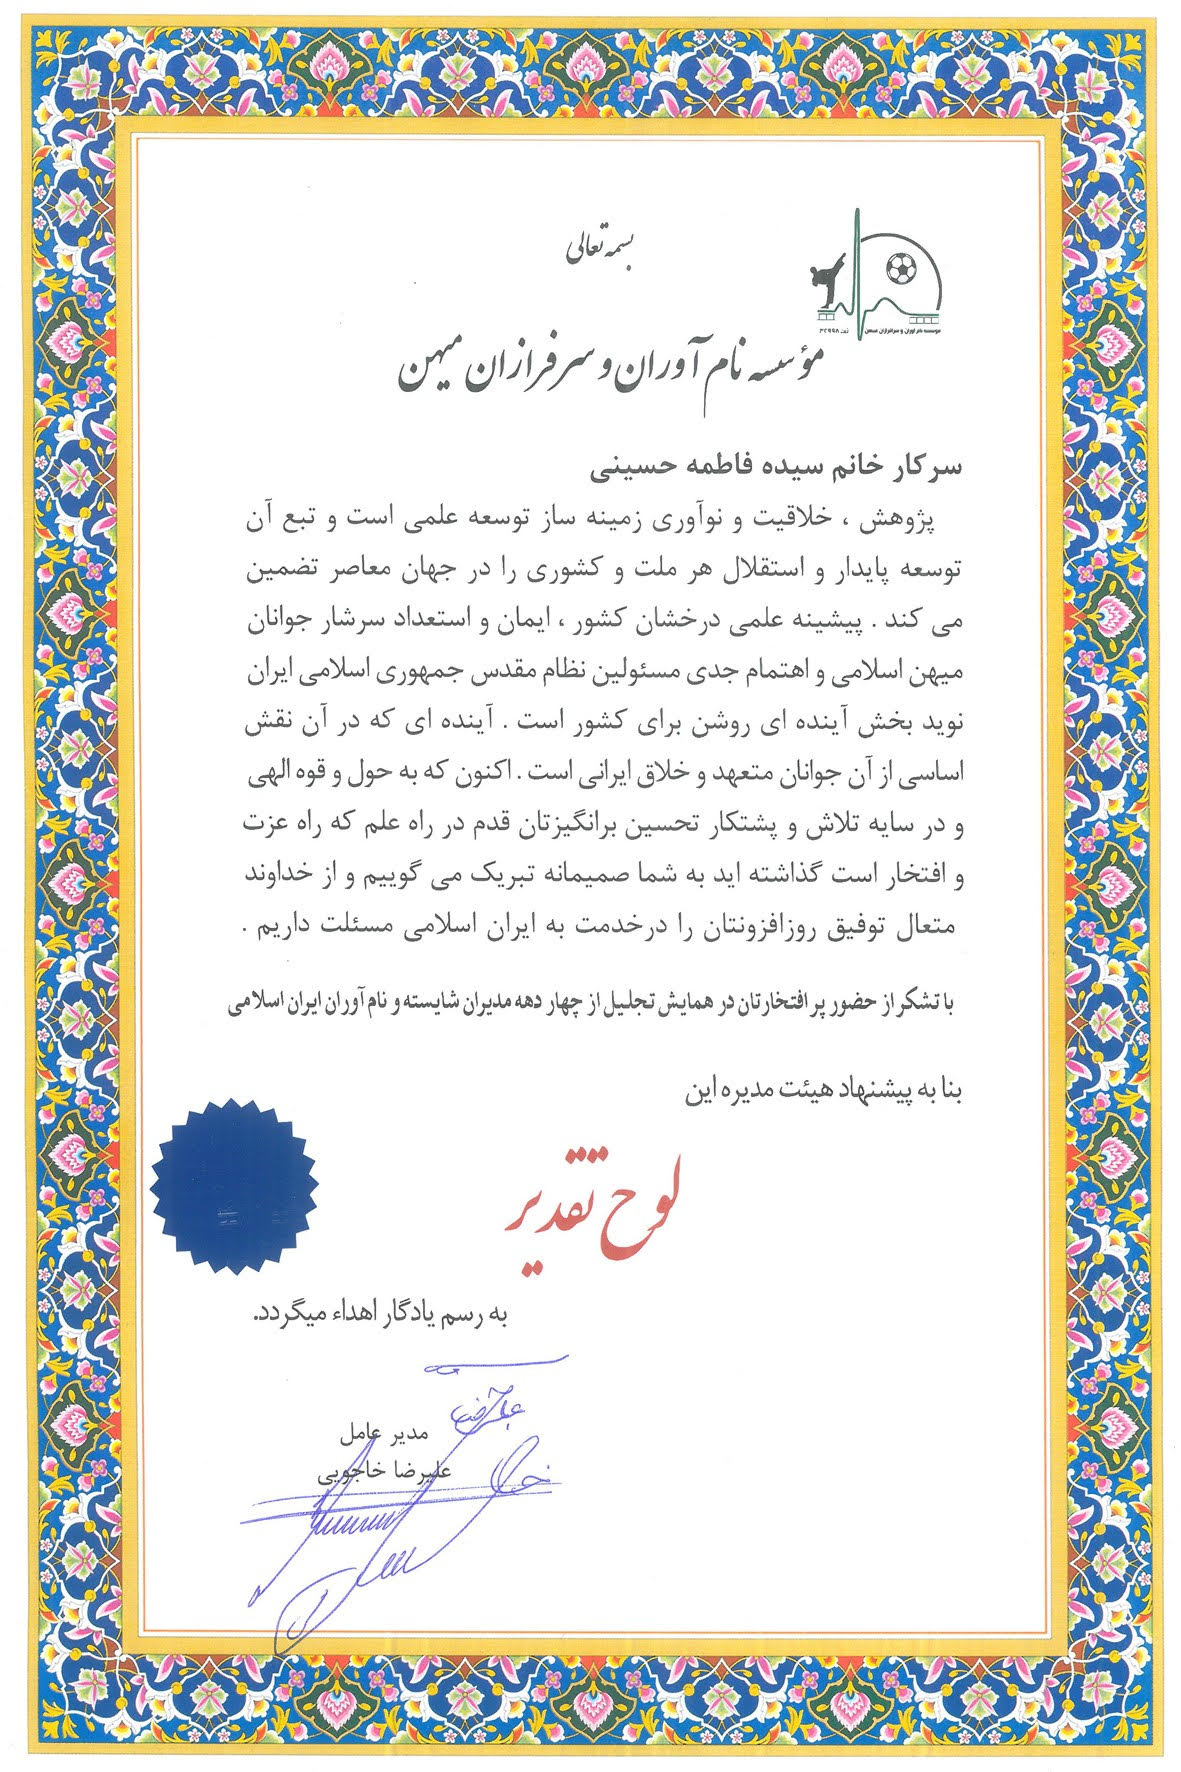 بسمه تعالی
موسسه نام آوران و سرافرازان میهن
ثبت ۳۴۹۹۸
مؤسسه نام آوران و سرفرازان میهن
سرکار خانم سیده فاطمه حسینی
پژوهش ، خلاقیت و نوآوری زمینه ساز توسعه علمی است و تبع آن
توسعه پایدار و استقلال هر ملت و کشوری را در جهان معاصر تضمین
می کند . پیشینه علمی درخشان کشور ، ایمان و استعداد سرشار جوانان
میهن اسلامی و اهتمام جدی مسئولین نظام مقدس جمهوری اسلامی ایران
نوید بخش آینده ای روشن برای کشور است . آینده ای که در آن نقش
اساسی از آن جوانان متعهد و خلاق ایرانی است . اکنون که به حول و قوه الهی
و در سایه تلاش و پشتکار تحسین برانگیزتان قدم در راه علم که راه عزت
و افتخار است گذاشته اید به شما صمیمانه تبریک می گوییم و از خداوند
متعال توفیق روزافزونتان را درخدمت به ایران اسلامی مسئلت داریم .
با تشکر از حضور پر افتخارتان در همایش تجلیل از چهار دهه مدیران شایسته و نام آوران ایران اسلامی
بنا به پیشنهاد هیئت مدیره این
لوح تقدیر
به رسم یادگار اهداء میگردد.
مدیر عامل
علیرضا خاجویی